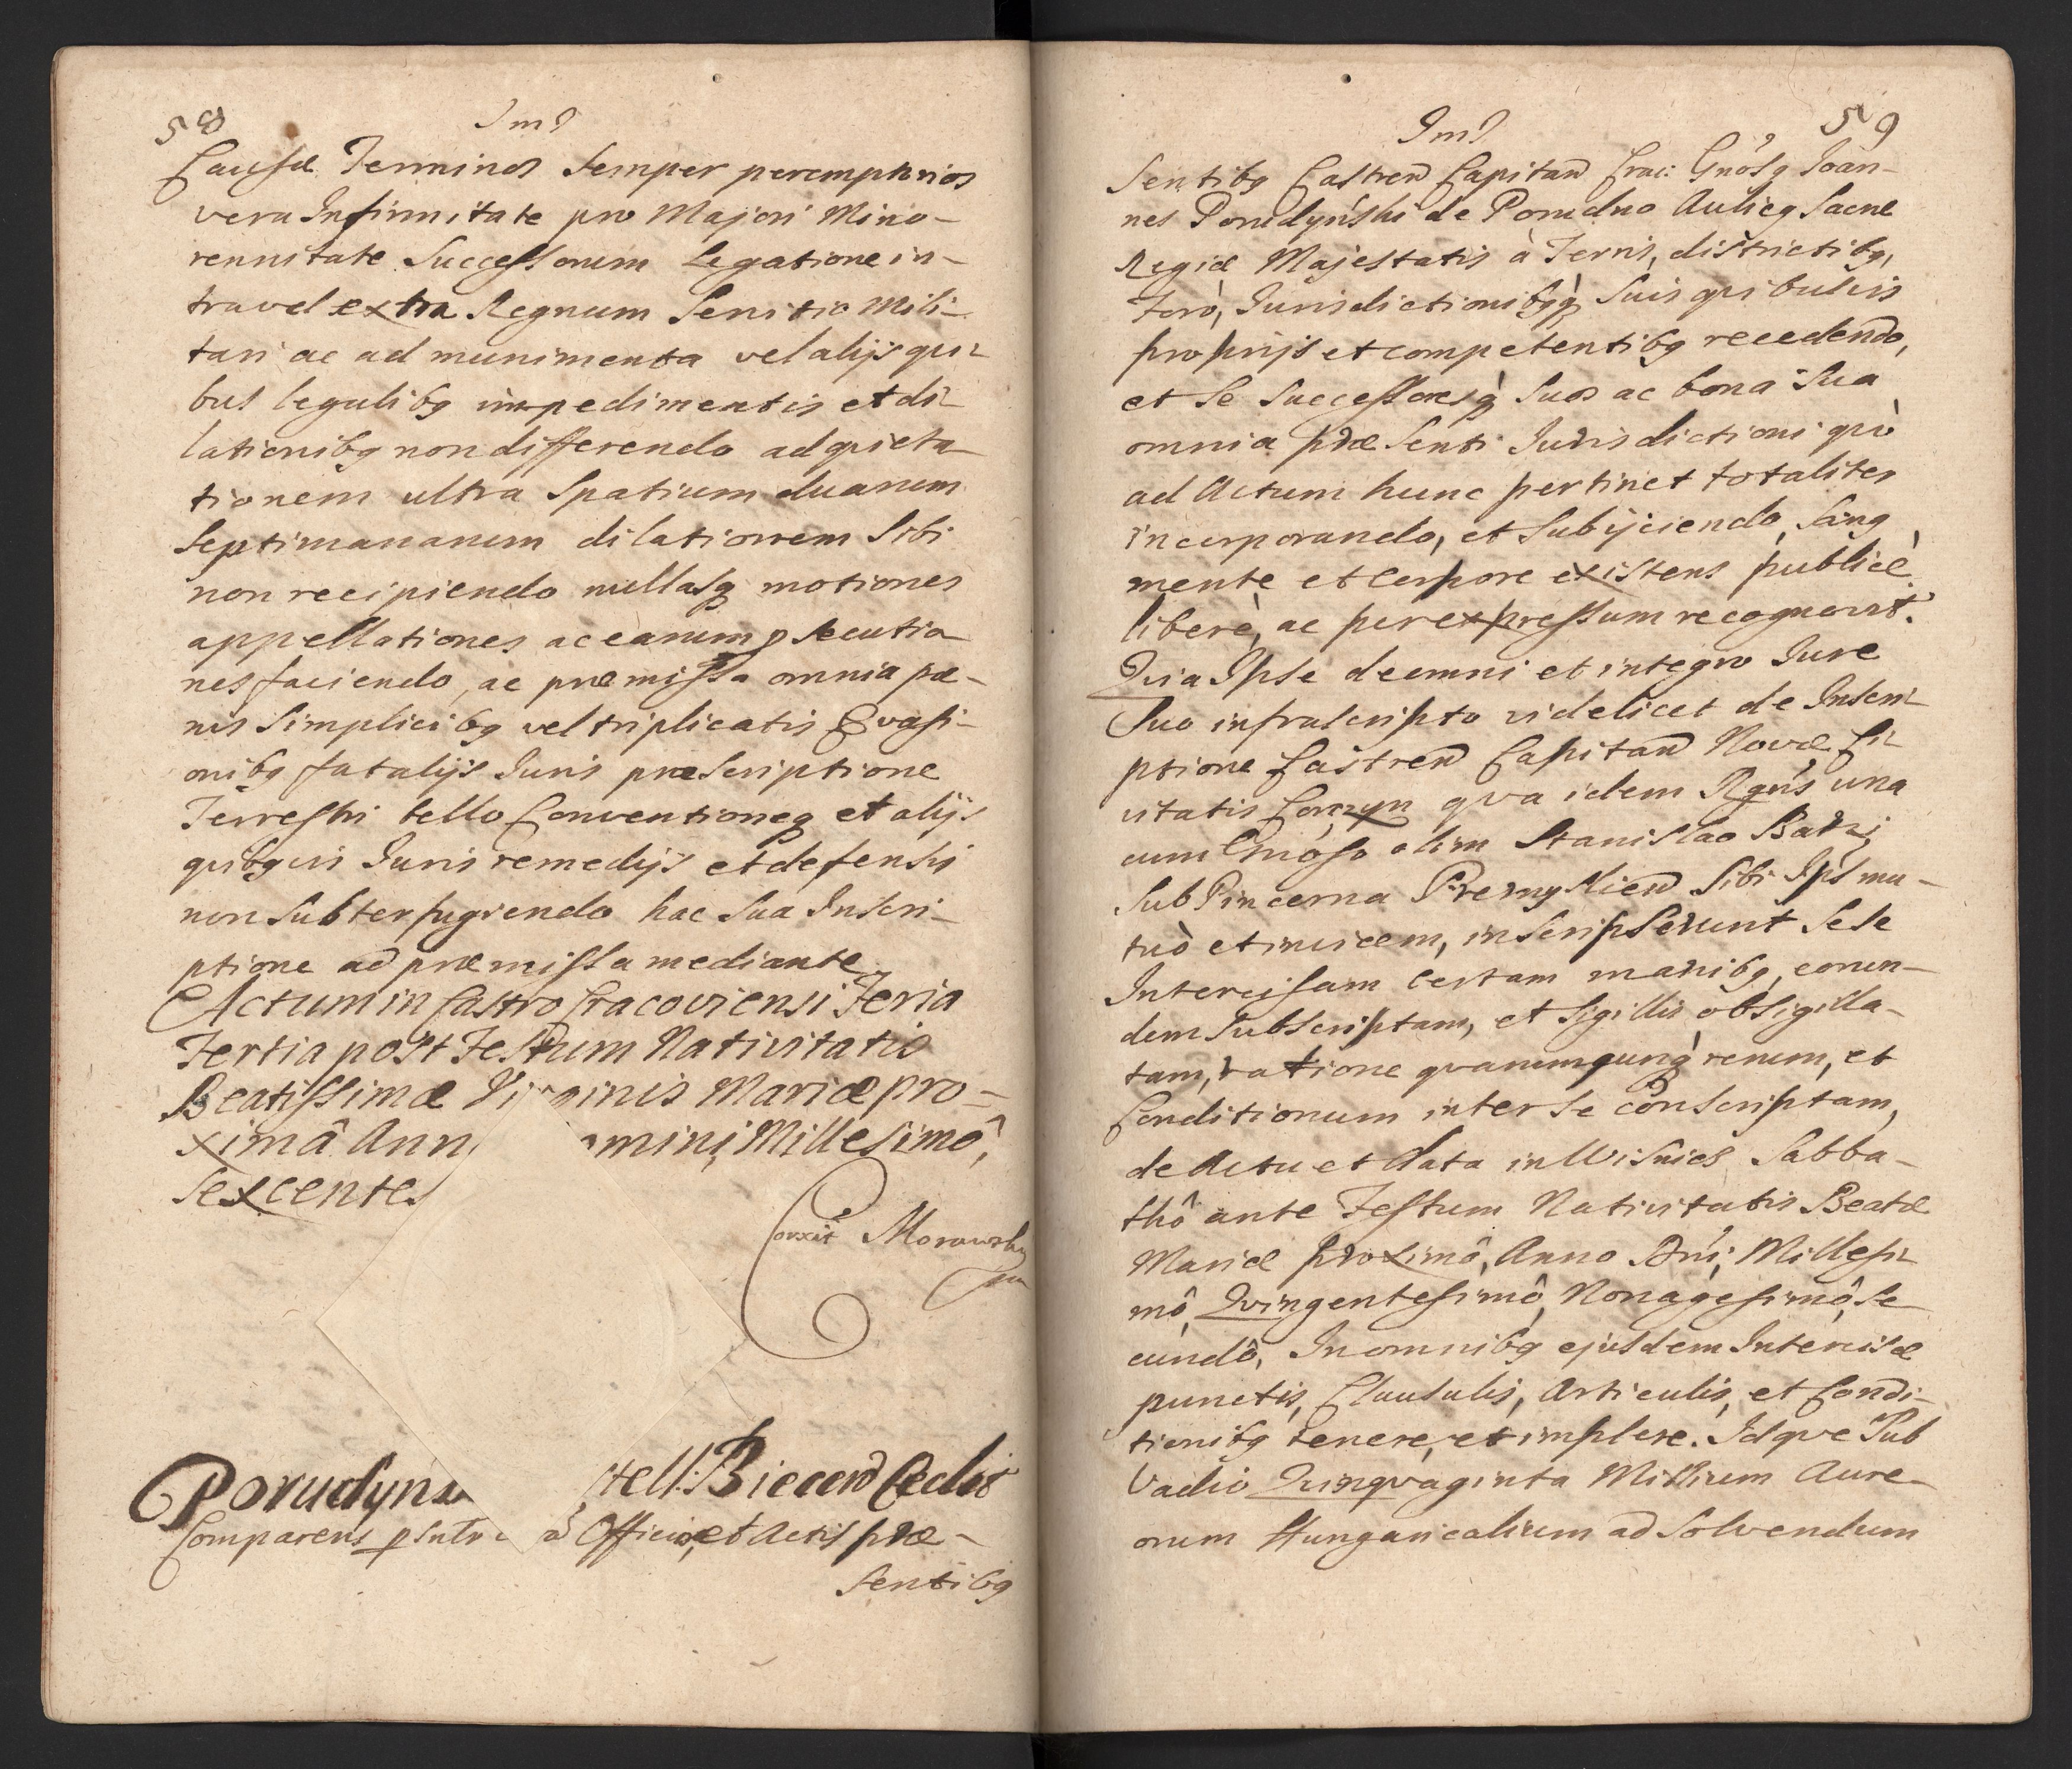 58
Jmj
Causæ Terminos semper peremptorios
vera Infirmitate pro Majori Mino-
rennitate Successorum Legatione in-
travel extra Regnum Servitio Mili-
tari ac ad munimenta vel alijs qui-
bus legalibq impedimentis et di-
lationibq non differendo ad quieta-
tionem ultra Spatium duarum
Septimanarum dilationem Sibi
non recipiendo nullasq motiones
appellationes ac earum psecutio
nes faciendo, ac præmissa omnia pæ-
nis Simplicibq vel triplicatis Evasi-
onibq fatalijs Juris præscriptione
Terrestri bello Conventioneq et alijs
qvibqvis Juris remedijs et defensis
non subterfugiendo hac Sua Inscri-
ptione ad præmissa mediante
Actum in Castro Cracoviensi Feria
Tertia post Festum Nativitatis
Beatissimæ Virginis Mariæ pro-
ximâ Ann mini Millesimô,
Sexcentes
Corxit Morawsky
mp
Porudyns stell: Biecen Cedit
Comparens psntr ad Officio, et Actis præ-
sentibq
59
Jmj
sentibq Castren Capitan Crac: Gnosq Joan-
nes Porudyński de Porudno Aulicq Sacræ
Regiæ Majestatis à Terris, districtibq,
Forò, Jurisdictionibqq̀ Suis qvibusvis
proprijs et competentibq recedendo,
et Se Successoresq̀ Suos ac bona Sua
omnia præsenti Jurisdictioni qvò
ad Actum hunc pertinet totaliter
incorporando, et Subijciendo, Sanq
mente et Corpore existens publicè
liberè, ac per expressum recognovit.
Qvia Ipse de omni et integro Jure
Suo infrascripto videlicet de Inscri-
ptione Castren Capitan Novæ Ci-
vitatis Corczyn qva idem Rgnś una
cum Gnoso olim Stanislao Batzi
SubPincerna Præmyslien Sibi Ipś mu-
tuò et invicem, inscripserunt Sese
Intercisam certam manibq, eorun-
dem Subscriptam, et Sigillis obsigilla-
tam, ratione qvarumqunq̀ rerum, et
Conditionum inter Se Conscriptam,
de Actu et Data in Wiśnicz Sabba-
thô ante Festum Nativitatis Beatæ
Mariæ proximô, Anno Dnį Millesi-
mô, Qvingentesimô, Nonagesimô, Se
cundô, In omnibq ejusdem Intercisæ
punctis, Clausulis, Articulis, et Condi-
tionibq tenere, et implere. Idqve Sub
Vadio Qvinqvaginta Millium Aure-
orum Hungaricalium ad Solvendum